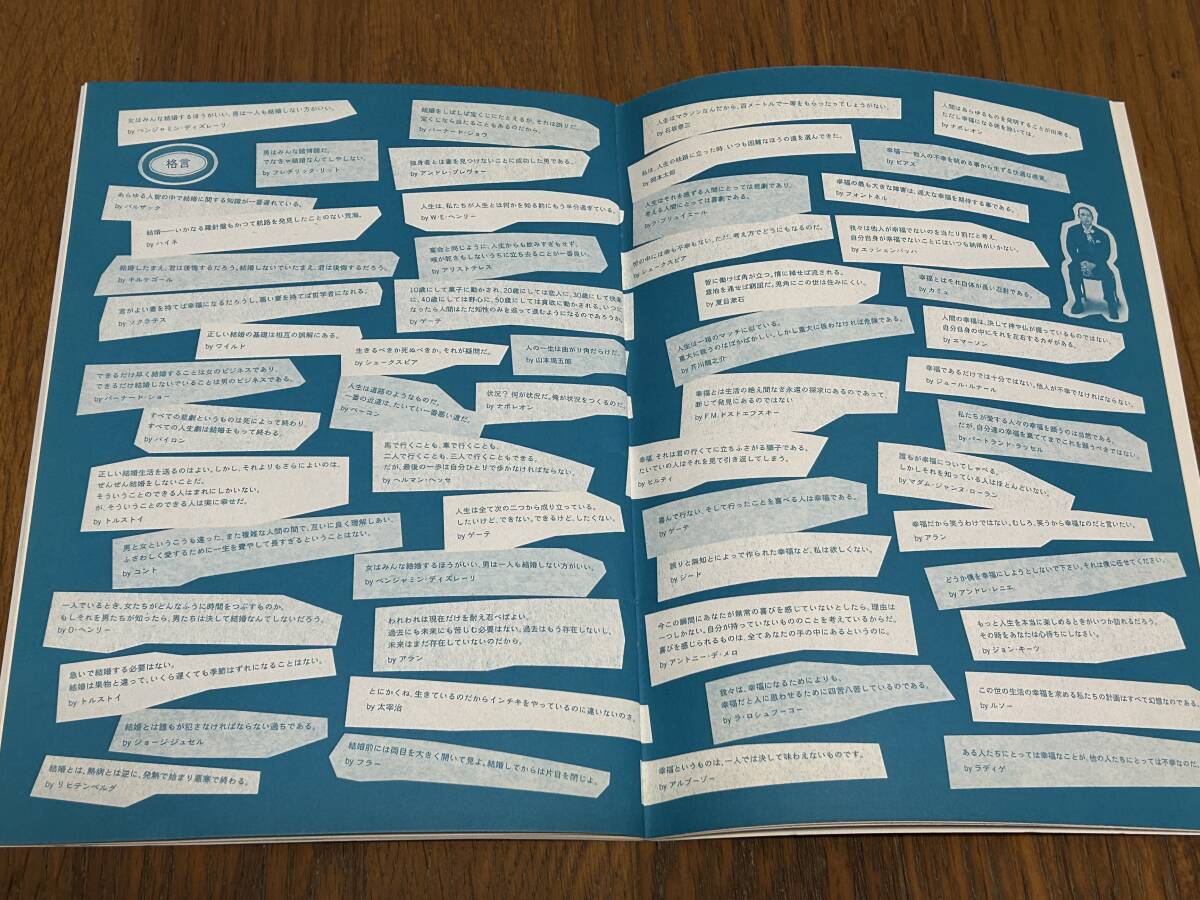 女はみんな結婚するほうがいい、男は一人も結婚しない方がいい。
by ベンジャミン・ディズレーリ
格言
男はみんな賭博師だ。
でなきゃ結婚なんてしやしない。
by フレデリック・リット
あらゆる人智の中で結婚に関する知識が一番遅れている。
by バルザック
結婚——いかなる羅針盤もかつて航路を発見したことのない荒海。
by ハイネ
結婚したまえ、君は後悔するだろう。結婚しないでいたまえ、君は後悔するだろう。
by キルケゴール
君がよい妻を持てば幸福になるだろうし、悪い妻を持てば哲学者になれる。
by ソクラテス
正しい結婚の基礎は相互の誤解にある。
by ワイルド
できるだけ早く結婚することは女のビジネスであり、
できるだけ結婚しないでいることは男のビジネスである。
by バーナード・ショー
すべての悲劇というものは死によって終わり、
すべての人生劇は結婚をもって終わる。
by バイロン
正しい結婚生活を送るのはよい。しかし、それよりもさらによいのは、
ぜんぜん結婚をしないことだ。
そういうことのできる人はまれにしかいない。
が、そういうことのできる人は実に幸せだ。
by トルストイ
男と女というこうも違った、また複雑な人間の間で、互いに良く理解しあい、
ふさわしく愛するために一生を費やして長すぎるということはない。
by コント
一人でいるとき、女たちがどんなふうに時間をつぶすものか。
もしそれを男たちが知ったら、男たちは決して結婚なんてしないだろう。
by O・ヘンリー
急いで結婚する必要はない。
結婚は果物と違って、いくら遅くても季節はずれになることはない。
by トルストイ
結婚とは誰もが犯さなければならない過ちである。
by ジョージ・ジュセル
結婚とは、熱病とは逆に、発熱で始まり悪寒で終わる。
by リヒテンベルグ
結婚をしばしば宝くじにたとえるが、それは誤りだ。
宝くじなら当たることもあるのだから。
by バーナード・ショウ
独身者とは妻を見つけないことに成功した男である。
by アンドレ・プレヴォー
人生は、私たちが人生とは何かを知る前にもう半分過ぎている。
by W・E・ヘンリー
宴会と同じように、人生からも飲みすぎもせず、
喉が乾きもしないうちに立ち去ることが一番良い。
by アリストテレス
10歳にして菓子に動かされ、20歳にしては恋人に、30歳にして快楽
に、40歳にしては野心に、50歳にしては貪欲に動かされる。いつに
なったら人間はただ知性のみを追って進むようになるのであろうか。
by ゲーテ
生きるべきか死ぬべきか、それが疑問だ。
by シェークスピア
人の一生は曲がり角だらけだ。
by 山本周五郎
人生は道路のようなものだ。
一番の近道は、たいてい一番悪い道だ。
by ベーコン
状況？何が状況だ。俺が状況をつくるのだ。
by ナポレオン
馬で行くことも、車で行くことも、
二人で行くことも、三人で行くこともできる。
だが、最後の一歩は自分ひとりで歩かなければならない。
by ヘルマン・ヘッセ
人生は全て次の二つから成り立っている。
したいけど、できない。できるけど、したくない。
by ゲーテ
女はみんな結婚するほうがいい、男は一人も結婚しない方がいい。
by ベンジャミン・ディズレーリ
われわれは現在だけを耐え忍べばよい。
過去にも未来にも苦しむ必要はない。過去はもう存在しないし、
未来はまだ存在していないのだから。
by アラン
とにかくね、生きているのだからインチキをやっているのに違いないのさ。
by 太宰治
結婚前には両目を大きく開いて見よ。結婚してからは片目を閉じよ。
by フラー
人生はマラソンなんだから、百メートルで一等をもらったってしょうがない。
by 石坂泰三
私は、人生の岐路に立った時、いつも困難なほうの道を選んできた。
by 岡本太郎
人生はそれを感ずる人間にとっては悲劇であり、
考える人間にとっては喜劇である。
by ラ・ブリュイエール
世の中には幸も不幸もない。ただ、考え方でどうにもなるのだ。
by シェークスピア
智に働けば角が立つ。情に棹せば流される。
意地を通せば窮屈だ。兎角にこの世は住みにくい。
by 夏目漱石
人生は一箱のマッチに似ている。
重大に扱うのはばかばかしい。しかし重大に扱わなければ危険である。
by 芥川龍之介
幸福とは生活の絶え間なき永遠の探求にあるのであって、
断じて発見にあるのではない
by F.M.ドストエフスキー
幸福、それは君の行くてに立ちふさがる獅子である。
たいていの人はそれを見て引き返してしまう。
by ヒルティ
喜んで行ない、そして行ったことを喜べる人は幸福である。
by ゲーテ
誤りと無知とによって作られた幸福など、私は欲しくない。
by ジード
今この瞬間にあなたが無常の喜びを感じていないとしたら、理由は
一つしかない。自分が持っていないもののことを考えているからだ。
喜びを感じられるものは、全てあなたの手の中にあるというのに。
by アントニー・デ・メロ
我々は、幸福になるためによりも、
幸福だと人に思わせるために四苦八苦しているのである。
by ラ・ロシュフーコー
幸福というものは、一人では決して味わえないものです。
by アルブーゾー
人間はあらゆるものを発明することが出来る。
ただし幸福になる術を除いては。
by ナポレオン
幸福——他人の不幸を眺める事から生ずる快適な感覚。
by ビアス
幸福の最も大きな障害は、過大な幸福を期待する事である。
by フォントネル
我々は他人が幸福でないのを当たり前だと考え、
自分自身が幸福でないことにはいつも納得がいかない。
by エッシェンバッハ
幸福とはそれ自体が長い忍耐である。
by カミュ
人間の幸福は、決して神や仏が握っているものではない。
自分自身の中にそれを左右するカギがある。
by エマーソン
幸福であるだけでは十分ではない。他人が不幸でなければならない。
by ジュール・ルナール
私たちが愛する人々の幸福を願うのは当然である。
だが、自分達の幸福を棄ててまでこれを願うべきではない。
by バートランド・ラッセル
誰もが幸福についてしゃべる。
しかしそれを知っている人はほとんどいない。
by マダム・ジャンヌ・ローラン
幸福だから笑うわけではない。むしろ、笑うから幸福なのだと言いたい。
by アラン
どうか僕を幸福にしようとしないで下さい。それは僕に任せてください。
by アンドレ・レニエ
もっと人生を本当に楽しめるときがいつか訪れるだろう。
その時をあなたは心待ちにしなさい。
by ジョン・キーツ
この世の生活の幸福を求める私たちの計画はすべて幻想なのである。
by ルソー
ある人たちにとっては幸福なことが、他の人たちにとっては不幸なのだ。
by ラディゲ